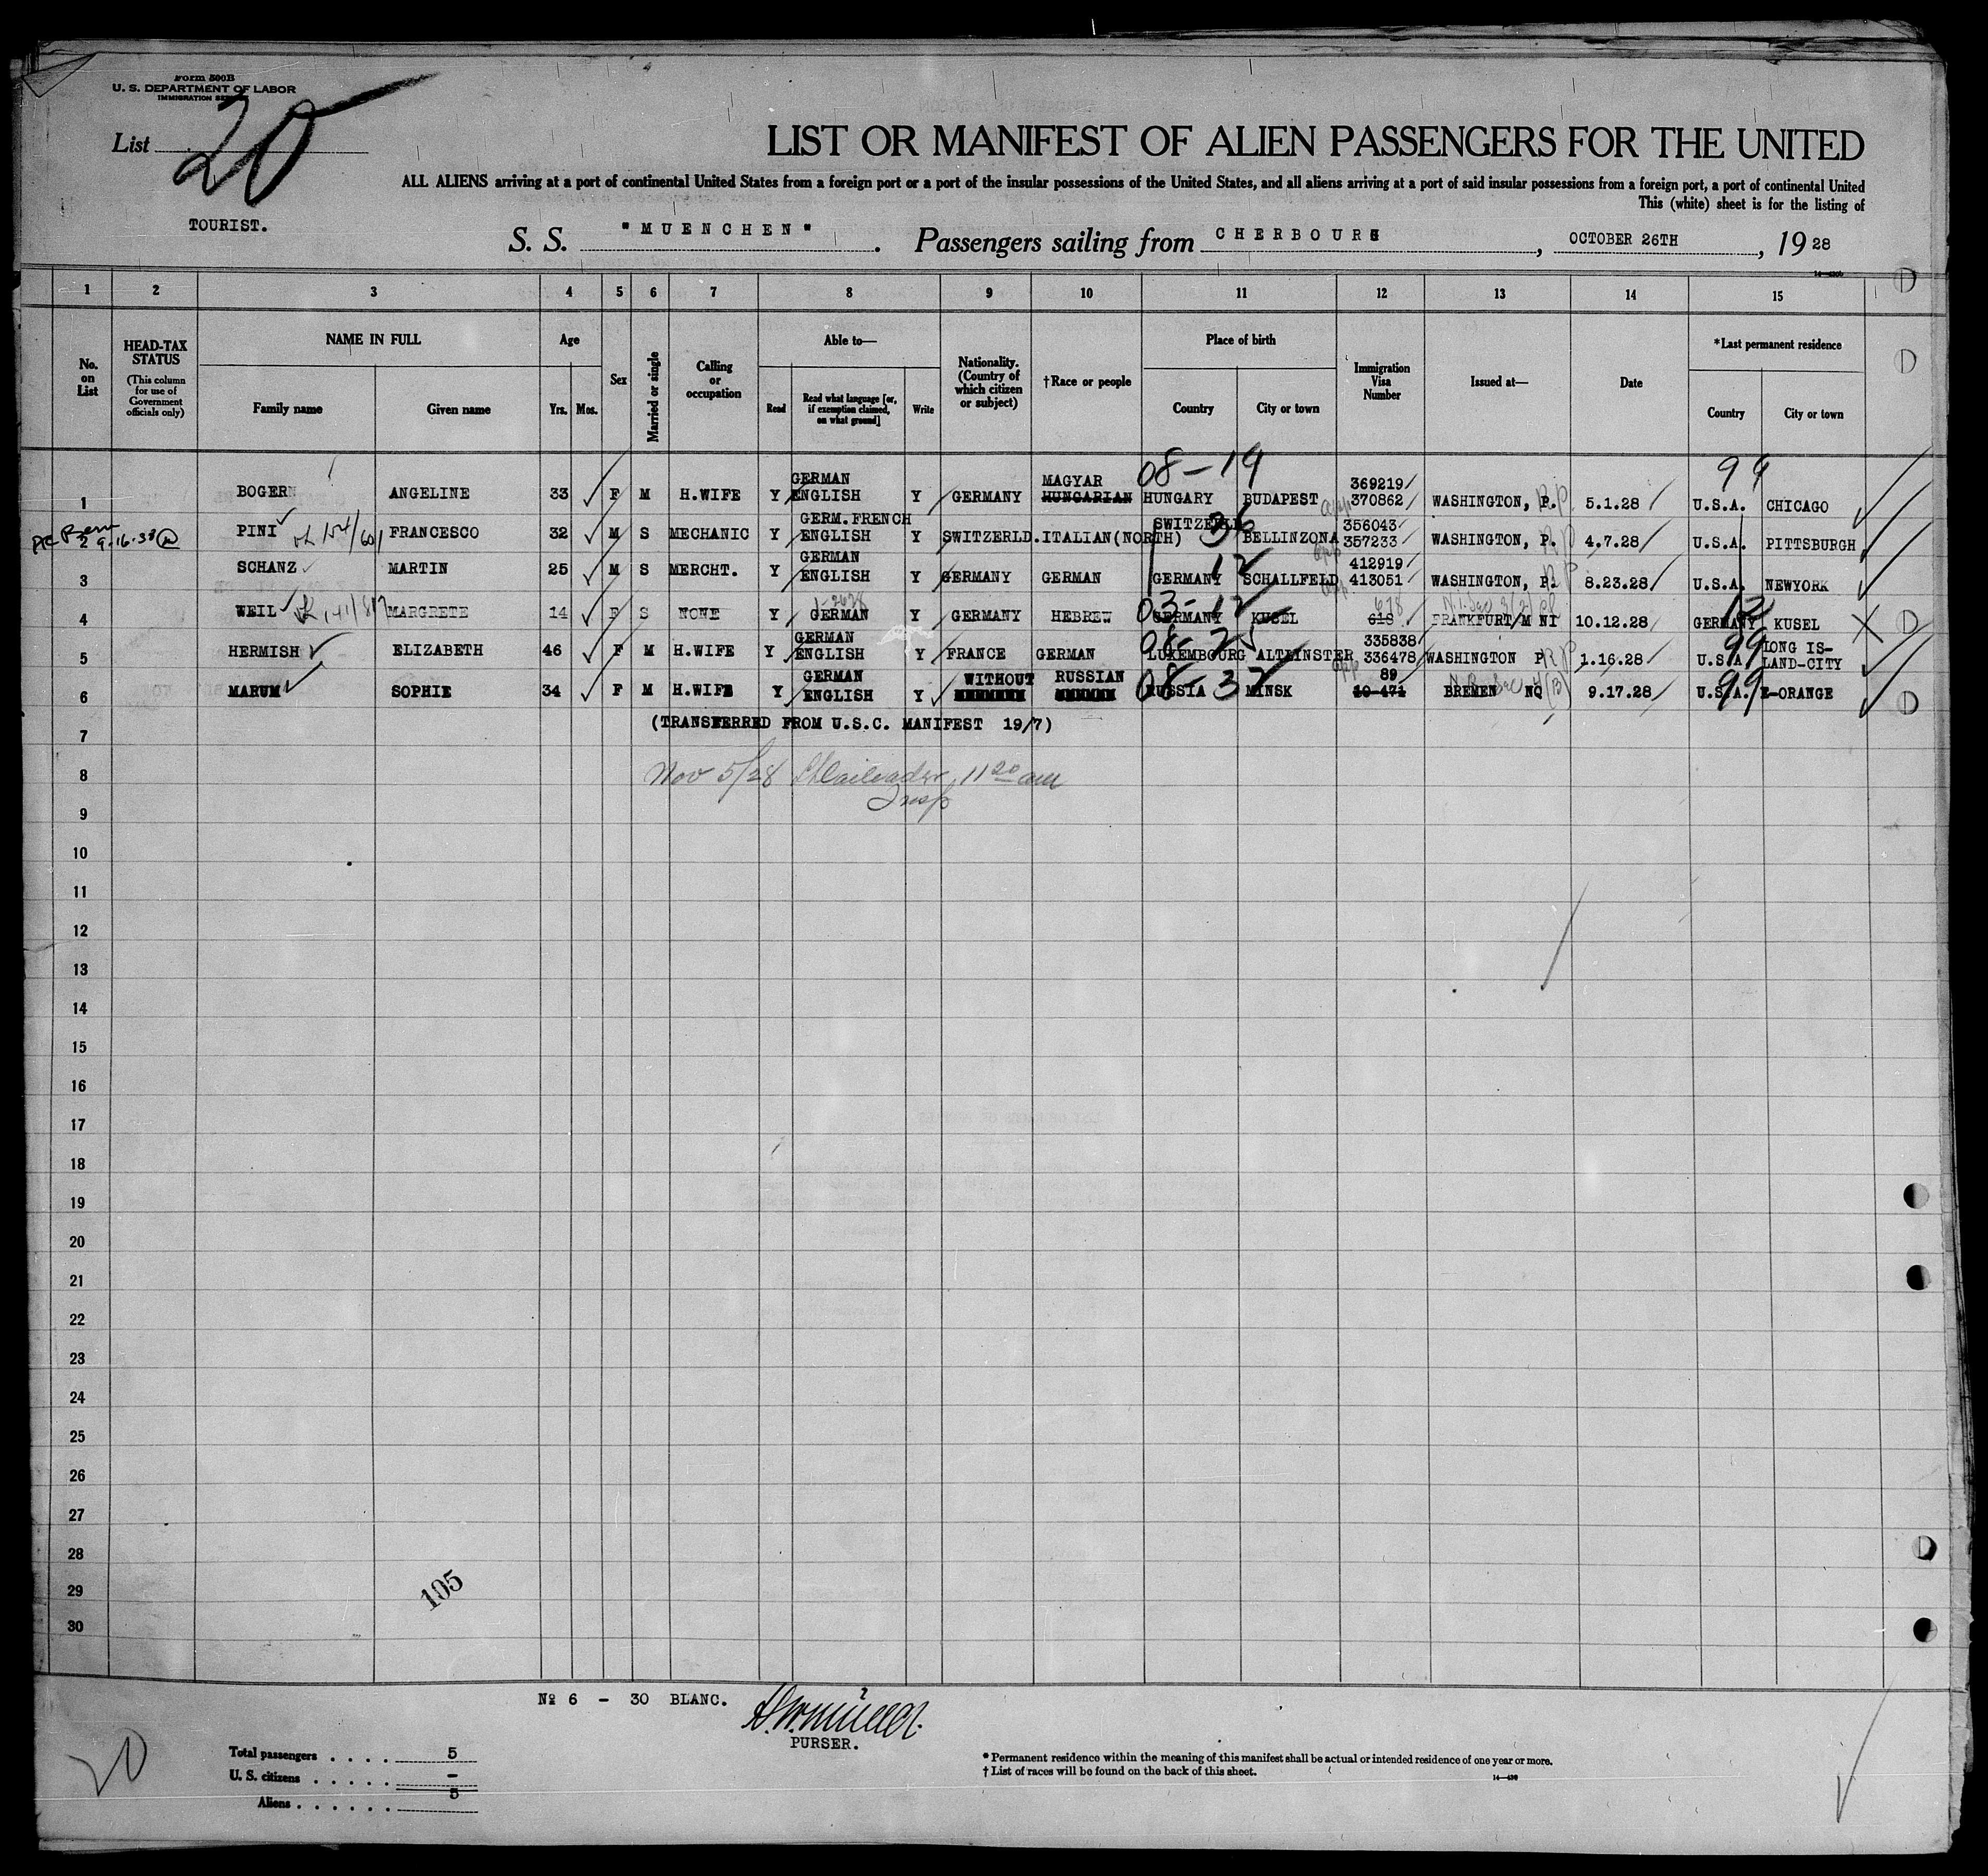 Form 500B
U. S. DEPARTMENT OF LABOR
IMMIGRATION SERVICE
List 20
LIST OR MANIFEST OF ALIEN PASSENGERS FOR THE UNITED
ALL ALIENS arriving at a port of continental United States from a foreign port or a port of the insular possessions of the United States, and all aliens arriving at a port of said insular possessions from a foreign port, a port of continental United
This (white) sheet is for the listing of
TOURIST.
S. S. "MUENCHEN". Passengers sailing from CHERBOURG, OCTOBER 26TH, 1928
1 2 3 4 5 6 7 8 9 10 11 12 13 14 15
No. on List
HEAD-TAX STATUS (This column for use of Government officials only)
NAME IN FULL Family name Given name
Age Yrs. Mos.
Sex
Married or single
Calling or occupation
Able to— Read Read what language [or, if exemption claimed, on what ground] Write
Nationality. (Country of which citizen or subject)
†Race or people
Place of birth Country City or town
Immigration Visa Number
Issued at—
Date
*Last permanent residence Country City or town
GERMAN MAGYAR 08-19 369219 99
1 BOGERN ANGELINE 33 F M H.WIFE Y ENGLISH Y GERMANY HUNGARIAN HUNGARY BUDAPEST 370862 WASHINGTON, P. 5.1.28 U.S.A. CHICAGO
GERM.FRENCH SWITZERLD 36 356043
2 9-16-38 PINI 154/601 FRANCESCO 32 M S MECHANIC Y ENGLISH Y SWITZERLD. ITALIAN(NORTH) BELLINZONA 357233 WASHINGTON, P. 4.7.28 U.S.A. PITTSBURGH
GERMAN 12 412919
3 SCHANZ MARTIN 25 M S MERCHT. Y ENGLISH Y GERMANY GERMAN GERMANY SCHALLFELD 413051 WASHINGTON, P. 8.23.28 U.S.A. NEWYORK
03-12 678 12
4 WEIL MARGRETE 14 F S NONE Y GERMAN Y GERMANY HEBREW GERMANY KUSEL 618 FRANKFURT/M NI 10.12.28 GERMANY KUSEL
GERMAN 08-25 335838 99 LONG IS-
5 HERMISH ELIZABETH 46 F M H.WIFE Y ENGLISH Y FRANCE GERMAN LUXEMBOURG ALTLINSTER 336478 WASHINGTON P 1.16.28 U.S.A. LAND-CITY
GERMAN WITHOUT RUSSIAN 08-37 89 99
6 MARUM SOPHIE 34 F M H.WIFE Y ENGLISH Y RUSSIA MINSK 10-471 BREMEN NQ 9.17.28 U.S.A. E-ORANGE
(TRANSFERRED FROM U.S.C. MANIFEST 19/7)
7
8 Nov 5/28 11 20 am
Insp
9
10
11
12
13
14
15
16
17
18
19
20
21
22
23
24
25
26
27
28
29 105
30
№ 6 - 30 BLANC.
PURSER.
20
Total passengers . . . . 5
U. S. citizens . . . . . -
Aliens . . . . . . 5
* Permanent residence within the meaning of this manifest shall be actual or intended residence of one year or more.
† List of races will be found on the back of this sheet.
14—430